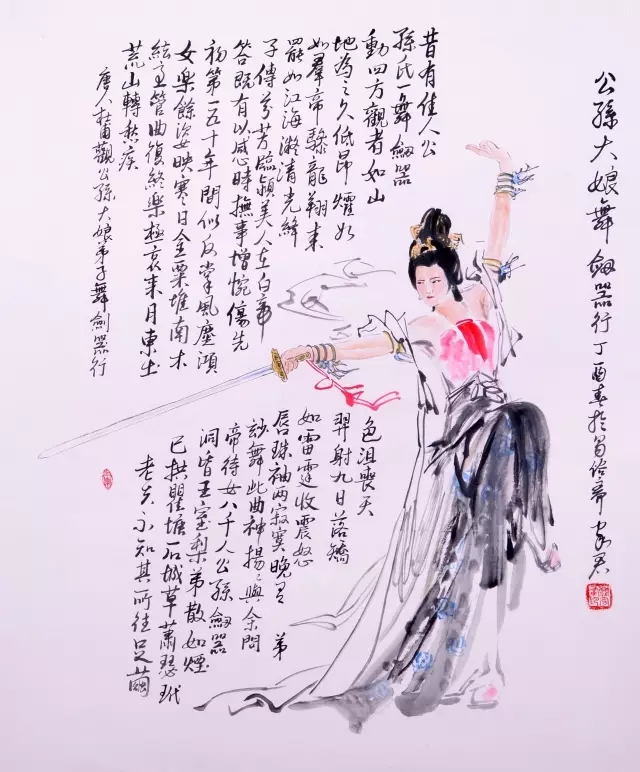 公孫大娘舞劍器行 丁酉春於蜀
昔有佳人公
孫氏一舞劍器
動四方觀者如山
色沮喪天
地為之久低昂㸌如
羿射九日落矯
如羣帝驂龍翔來
如雷霆收震怒
罷如江海凝清光絳
唇珠袖兩寂寞晚有弟
子傳芬芳臨潁美人在白帝
妙舞此曲神揚揚與余問
答既有以感時撫事增惋傷先
帝侍女八千人公孫劍器
初第一五十年間似反掌風塵澒
洞昏王室梨弟散如煙
女樂餘姿映寒日金粟堆南木
已拱瞿塘石城草蕭瑟玳
絃管曲復終樂極哀來月東出
老夫不知其所往足繭
荒山轉愁疾
唐人杜甫觀公孫大娘弟子舞劍器行